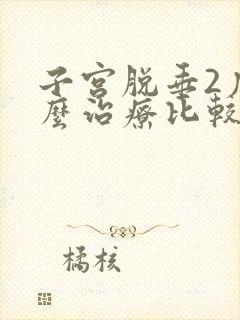 子宫脱垂2
麼治療比較
橘核